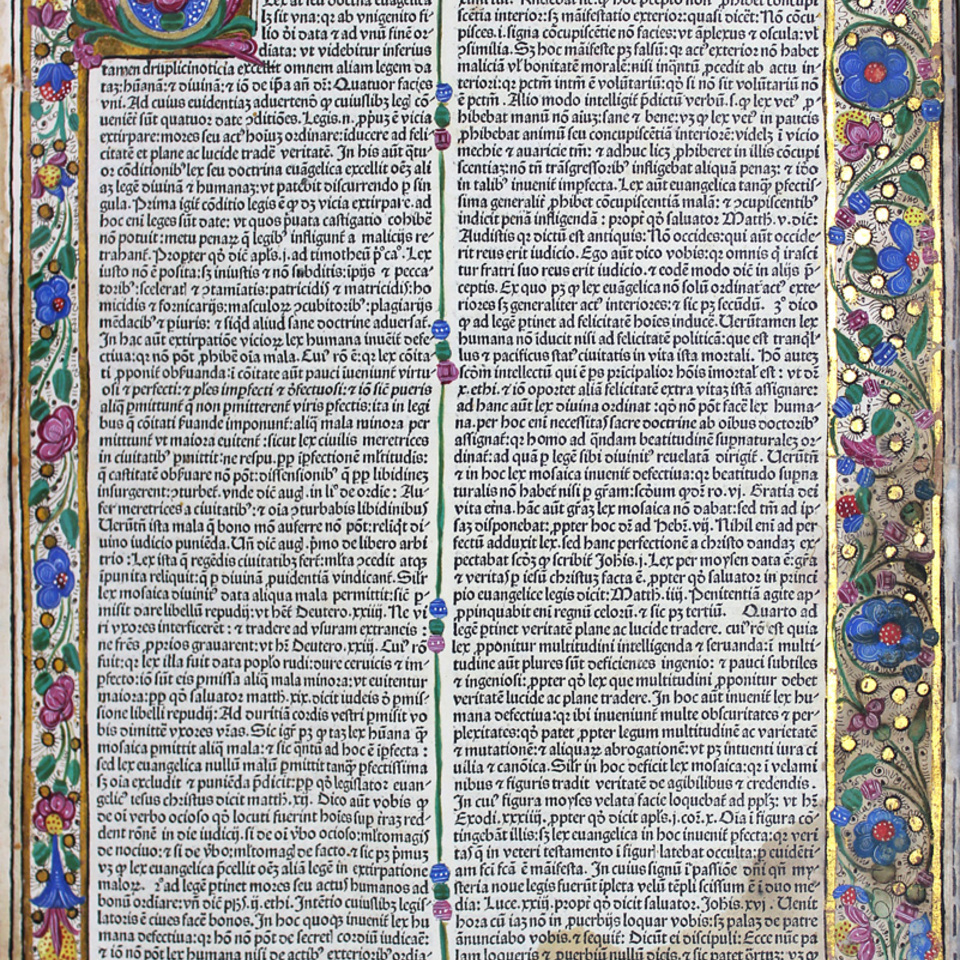 Lex at seu doctrina euāgelica
lʒ sit vna: qꝛ ab vnigenito fi⸗
lio ōi data ⁊ ad vnū finē oꝛ⸗
diata: vt videbitur inferius
tamen duplici noticia excellit omnem aliam legem da
taʒ: hūanā: ⁊ diuinā: ⁊ iō de ip̄a an̄ dē: Quatuor facies
vni. Ad cuius euidentiā aduertenō ꝙ cuiuslibʒ legi cō
ueniēt sūt quatuor date ꝯditiōes. Legis.n. ꝓpuʒ ē vicia
extirpare: mores seu act⁹ hoiuʒ ordinare: iducere ad feli
citatē et plane ac lucide tradē veritatē. In his aūt q̄tu⸗
oꝛ cōditionib⁹ lex seu doctrina euāgelica excellit oēʒ ali
aʒ legē diuinā ⁊ humanaʒ: vt patebit discurrendo ꝑ sin
gula. Prima igit̄ cōditio legis ē ꝙ dʒ vicia extirpare. ad
hoc eni leges sūt date: vt quos p̄uata castigatio cohibē
nō potuit: metu penaꝝ q̄ legib⁹ infligunt̄ a malicijs re⸗
trahant̄. Propter qō dic̄ apl̄s.j.ad timotheū p̄⁰ca⁰. Lex
iusto nō ē posita: sʒ iniustis ⁊ nō subditis: ip̄ijs ⁊ pecca
torib⁹: scelerat⁹ ⁊ ꝯtamiatis: patricidis ⁊ matricidis: ho
micidis ⁊ fornicarijs: masculoꝝ ꝯcubitorib⁹: plagiarijs
mēdacib⁹ ⁊ ꝑiuris: ⁊ siqd aliud sane doctrine aduersat̄.
In hac aūt extirpatiōe vicioꝝ lex humana inueit̄ defe⸗
ctiua: qꝛ nō pōt ꝓhibē oīa mala. Cui⁹ rō ē: qꝛ lex cōita
ti ꝓponit̄ obẜuanda: i cōitate aūt pauci iueniunt̄ virtu
osi ⁊ perfecti: ⁊ ples impfecti ⁊ ōfectuosi: ⁊ iō sic̄ pueris
aliq̄ ꝑmittunt̄ q̄ non ꝑmitterent̄ viris ꝑfectis: ita in legi
bus q̄ cōitati ẜuande imponunt̄: aliq̄ mala minora per
mittunt̄ vt maiora euitent̄: sicut lex ciuilis meretrices
in ciuitatib⁹ ꝑmittit: ne respu.ꝓp īꝑfectionē ml̄titudis:
q̄ castitatē obẜuare nō pōt: dissensionib⁹ q̄ ꝓp libidineʒ
insurgerent: ꝯturbet̄. vnde dic̄ aug. in li⁰ de ordie: Au⸗
fer meretrices a ciuitatib⁹: ⁊ oīa ꝯturbabis libidinibus
Uerūtn̄ ista mala q̄ bono mō auferre nō pōt: reliqt di⸗
uino iudicio puniēda. Uñ dic̄ aug. p̄mo de libero arbi
trio: Lex ista q̄ regēdis ciuitatibʒ fert̄: ml̄ta ꝯcedit atqʒ
ipunita reliquit: q̄ ꝑ diuinā ꝓuidentiā vindicant̄. Sil̄r
lex mosaica diuinit⁹ data aliqua mala permittit: sic̄ ꝑ
misit dare libellū repudij: vt hēt̄ Deutero.xxiiij. Ne vi
ri vxores interficerēt: ⁊ tradere ad vsuram extraneis:
ne frēs ꝓprios grauarent: vt hr̄ Deutero.xxiij. Cui⁹ rō
fuit: qꝛ lex illa fuit data poplo rudi: dure ceruicis ⁊ im⸗
ꝑfecto: iō sūt eis ꝑmissa aliq̄ mala minora: vt euitentur
maiora: ꝓp qō saluator matth.xix. dicit iudeis ō ꝑmis⸗
sione libelli repudij: Ad duritiā cordis vestri ꝑmisit vo
bis dimittē vxores vr̄as. Sic igit̄ pʒ ꝙ taʒ lex hūana q̄
mosaica ꝑmittit aliq̄ mala: ⁊ sic q̄ntū ad hoc ē iꝑfecta:
sed lex euangelica nullū malū ꝑmittit tanq̄ ꝑfectissima
sʒ oīa excludit ⁊ puniēda p̄dicit: ꝓp qō legislator euan⸗
gelic⁹ iesus christus dicit matth.xij. Dico aūt vobis ꝙ
de oī verbo ocioso qō locuti fuerint hoies sup̄ iraʒ red⸗
dent rōnē in die iudicij. si de oī v̄bo ocioso: ml̄tomagis
de nociuo: ⁊ si de v̄bo: ml̄tomagꝭ de facto. ⁊ sic pʒ p̄muʒ
vʒ ꝙ lex euangelica p̄cellit oēʒ aliā legē in extirpatione
maloꝝ. 2⁰ ad legē ptinet mores seu actus humanos ad
bonū ordiare: vñ dic̄ ph̄s.ij.ethi. Intētio cuiuslibʒ legis⸗
latoris ē ciues facē bonos. In hoc quoqʒ inuenit̄ lex hu
mana defectiua: qꝛ hō nō pōt de secretꝭ cordiū iudicare:
⁊ iō nō pōt lex humana nisi de actib⁹ exteriorib⁹ ordia⸗
scētia interior: sʒ māifestatio exterior: quasi dicēt: Nō cōcu⸗
pisces.i.signa cōcupiscētie nō facies: vt āplexus ⁊ oscula: vl̄
ꝯsimilia. Sʒ hoc māifeste pʒ falsū: qꝛ act⁹ exterior nō habet
maliciā vl̄ bonitatē moralē: nisi inq̄ntū ꝓcedit ab actu in⸗
teriori: qꝛ pctm̄ intm̄ ē volūtariū: qō si nō sit voluntariū nō
ē pctm̄. Alio modo intelligit̄ p̄dictū verbū.s.ꝙ lex vet⁹ ꝓ⸗
hibebat manū nō aiuʒ: sane ⁊ bene: vʒ ꝙ lex vet⁹ in paucis
ꝓhibebat animū seu concupiscētia interiorē: videlʒ i vicio
mechie ⁊ auaricie tm̄: ⁊ adhuc licʒ ꝓhiberet in illis cōcupi
scentiaʒ: nō tn̄ trāsgressorib⁹ infligebat aliquā penaʒ: ⁊ ideo
in talib⁹ inuenit̄ impfecta. Lex aūt euangelica tanq̄ ꝑfectis⸗
sima generalit̄ ꝓhibet cōcupiscentiā malā: ⁊ ꝯcupiscentib⁹
indicit penā infligendā: propt̄ qō saluator Matth.v. dic̄:
Audistis qꝛ dictū est antiquis: Nō occides: qui aūt occide⸗
rit reus erit iudicio. Ego aūt dico vobis: qꝛ omnis q̄ irasci
tur fratri suo reus erit iudicio. ⁊ eodē modo dic̄ in alijs p̄⸗
ceptis. Ex quo pʒ ꝙ lex euāgelica nō solū ordinat act⁹ exte⸗
riores sʒ generaliter act⁹ interiores: ⁊ sic pʒ secūdū. 3⁰ dico
ꝙ ad legē ptinet ad felicitatē hoies inducē. Uerūtamen lex
humana nō iducit nisi ad felicitatē politicā: que est tranql̄
lus ⁊ pacificus stat⁹ ciuitatis in vita ista mortali. Hō autez
scdm̄ intellectū qui ē ps pricipalior hōis imortal⁹ est: vt dr̄
x.ethi. ⁊ iō oportet aliā felicitatē extra vitaʒ istā assignare:
ad hanc aūt lex diuina ordinat: qō nō pōt facē lex huma⸗
na. per hoc eni necessitas sacre doctrine ab oibus doctorib⁹
assignat̄: qꝛ homo ad q̄ndam beatitudinē supnaturaleʒ or⸗
dinat̄: ad quā ꝑ legē sibi diuinit⁹ reuelatā dirigit̄. Uerūtn̄
⁊ in hoc lex mosaica inuenit̄ defectiua: qꝛ beatitudo supna
turalis nō habet̄ nisi ꝑ gr̄am: scōum qōʒ ro.vj. Gratia dei
vita etn̄a. hāc aūt gr̄aʒ lex mosaica nō dabat: sed tm̄ ad ip⸗
saʒ disponebat: ꝓpter hoc dr̄ ad Hebr̄.vij. Nihil eni ad per
fectū adduxit lex. sed hanc perfectionē a christo dandaʒ ex⸗
pectabat scōʒ ꝙ scribit̄ Johis.j. Lex per moysen data ē: gr̄a
⁊ veritas ꝑ iesū christuʒ facta ē. ꝓpter qō saluator in princi
pio euangelice legis dicit: Matth.iiij. Penitentiā agite ap⸗
ꝓpinquabit eni regnū celorū. ⁊ sic pʒ tertiū. Quarto ad
legē ptinet veritatē plane ac lucide tradere. cui⁹ rō est quia
lex ꝓponitur multitudini intelligenda ⁊ seruanda: i multi
tudine aūt plures sūt deficientes ingenio: ⁊ pauci subtiles
⁊ ingeniosi: ꝓpter qō lex que multitudini ꝓponitur debet
veritatē lucide ac plane tradere. In hoc aūt inuenit̄ lex hu⸗
mana defectiua: qꝛ ibi inueniunt̄ multe obscuritates ⁊ per⸗
plexitates: qō patet ꝓpter legum multitudinē ac varietatē
⁊ mutationē: ⁊ aliquaꝝ abrogationē: vt pʒ intuenti iura ci
uilia ⁊ canōica. Sil̄r in hoc deficit lex mosaica: qꝛ i velami
nibus ⁊ figuris tradit veritatē de agibilibus ⁊ credendis.
In cui⁹ figura moyses velata facie loquebat̄ ad pplʒ: vt hr̄
Exodi.xxxiiij. ꝓpter qō dicit apl̄s.j.coꝝ.x. Oīa i figura cō⸗
tingebāt illis: sʒ lex euangelica in hoc inuenit̄ ꝑfecta: qꝛ veri
tas q̄ in veteri testamento i figurꝭ latebat occulta: ꝑ euidēti⸗
am fci fcā ē māifesta. In cuius signū i passiōe dn̄i qn̄ my⸗
steria noue legis fuerūt ipleta velū tēpli scissum ē i duo me⸗
dia: Luce.xxiij. propt̄ qō dicit saluator. Johis.xvj. Uenit
hora cū iaʒ nō in ꝓuerbijs loquar vobis: sʒ palaʒ de patre
ānunciabo vobis. ⁊ sequit̄: Dicūt ei discipuli: Ecce nūc pa
lam loqueris ⁊ ꝓuerbiū nullū dicis.